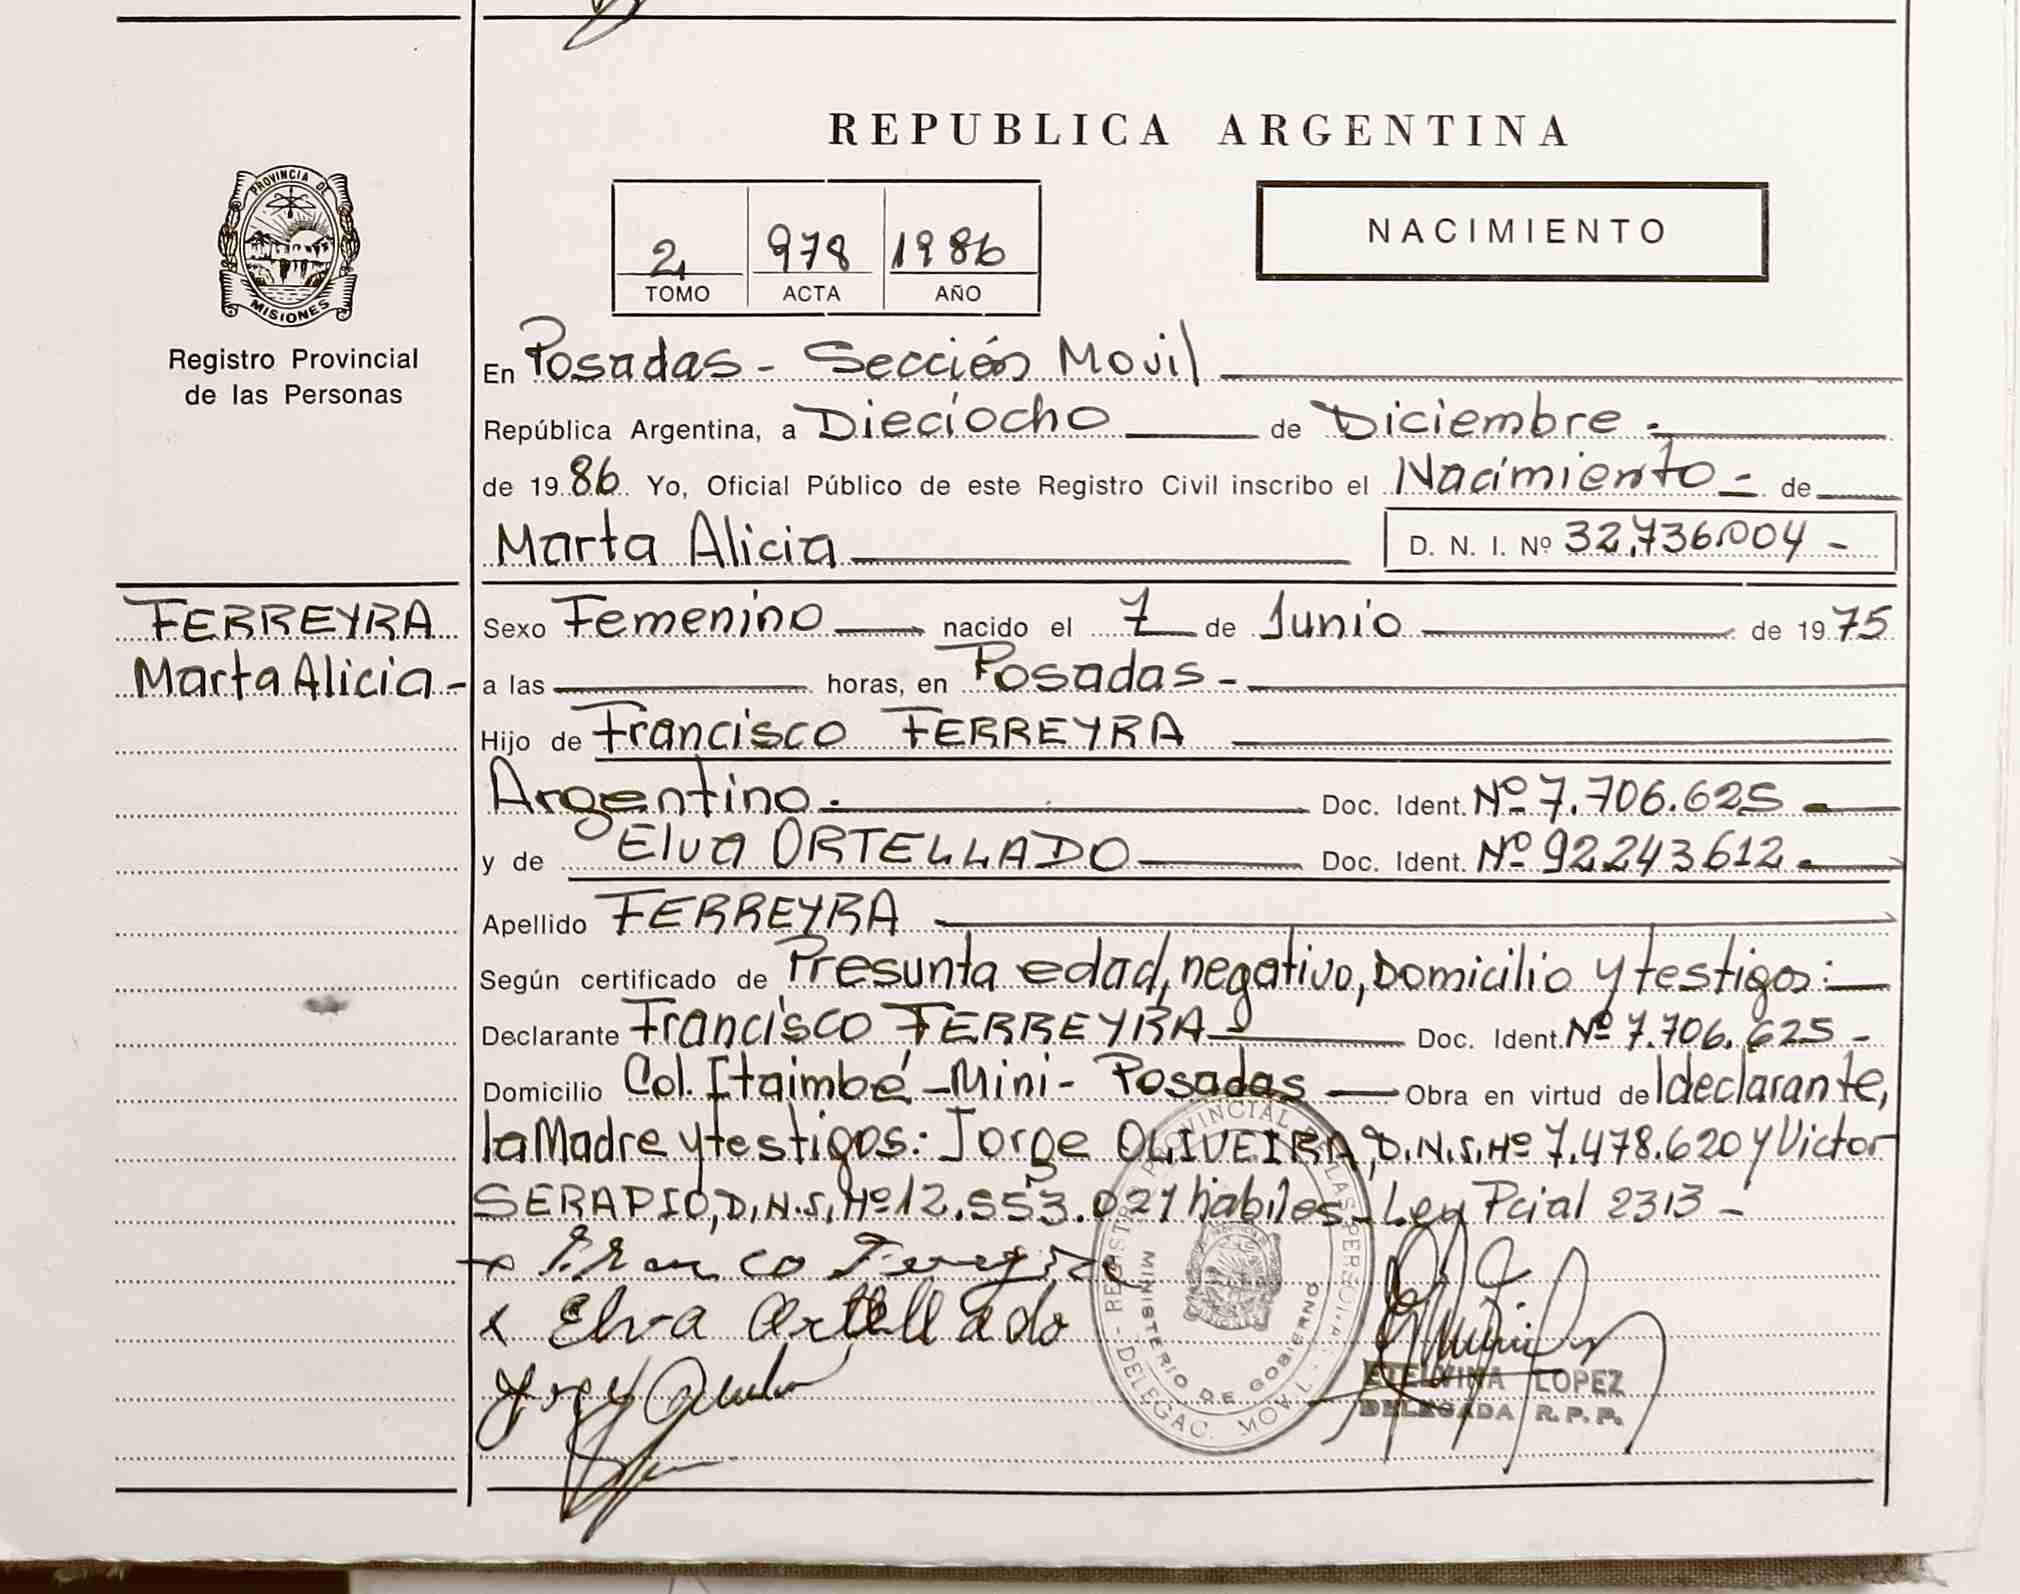 REPUBLICA ARGENTINA
PROVINCIA DE
MISIONES
Registro Provincial
de las Personas
2 978 1986
TOMO ACTA AÑO
NACIMIENTO
En Posadas - Sección Movil
República Argentina, a Dieciocho de Diciembre.
de 1986 Yo, Oficial Público de este Registro Civil inscribo el Nacimiento - de
Marta Alicia D. N. I. Nº 32.736.004 -
FERREYRA
Marta Alicia -
Sexo Femenino nacido el 7 de Junio de 1975
a las horas, en Posadas -
Hijo de Francisco FERREYRA
Argentino. Doc. Ident. Nº 7.706.625 -
y de Elva ORTELLADO Doc. Ident. Nº 92243612 -
Apellido FERREYRA
Según certificado de Presunta edad, negativo, Domicilio y testigos:
Declarante Francisco FERREYRA Doc. Ident. Nº 7.706.625 -
Domicilio Col. Itaimbé - Mini - Posadas Obra en virtud de l declarante,
la Madre y testigos: Jorge OLIVEIRA, D.N.I. Nº 7.478.620 y Victor
SERAPIO, D.N.I. Nº 12.553.021 habiles - Ley Pcial 2313 -
Elva Ortellado
REGISTRO PROVINCIAL DE LAS PERSONAS
MINISTERIO DE GOBIERNO
DELEGAC. MOVIL
ETELVINA LOPEZ
DELEGADA R. P. P.